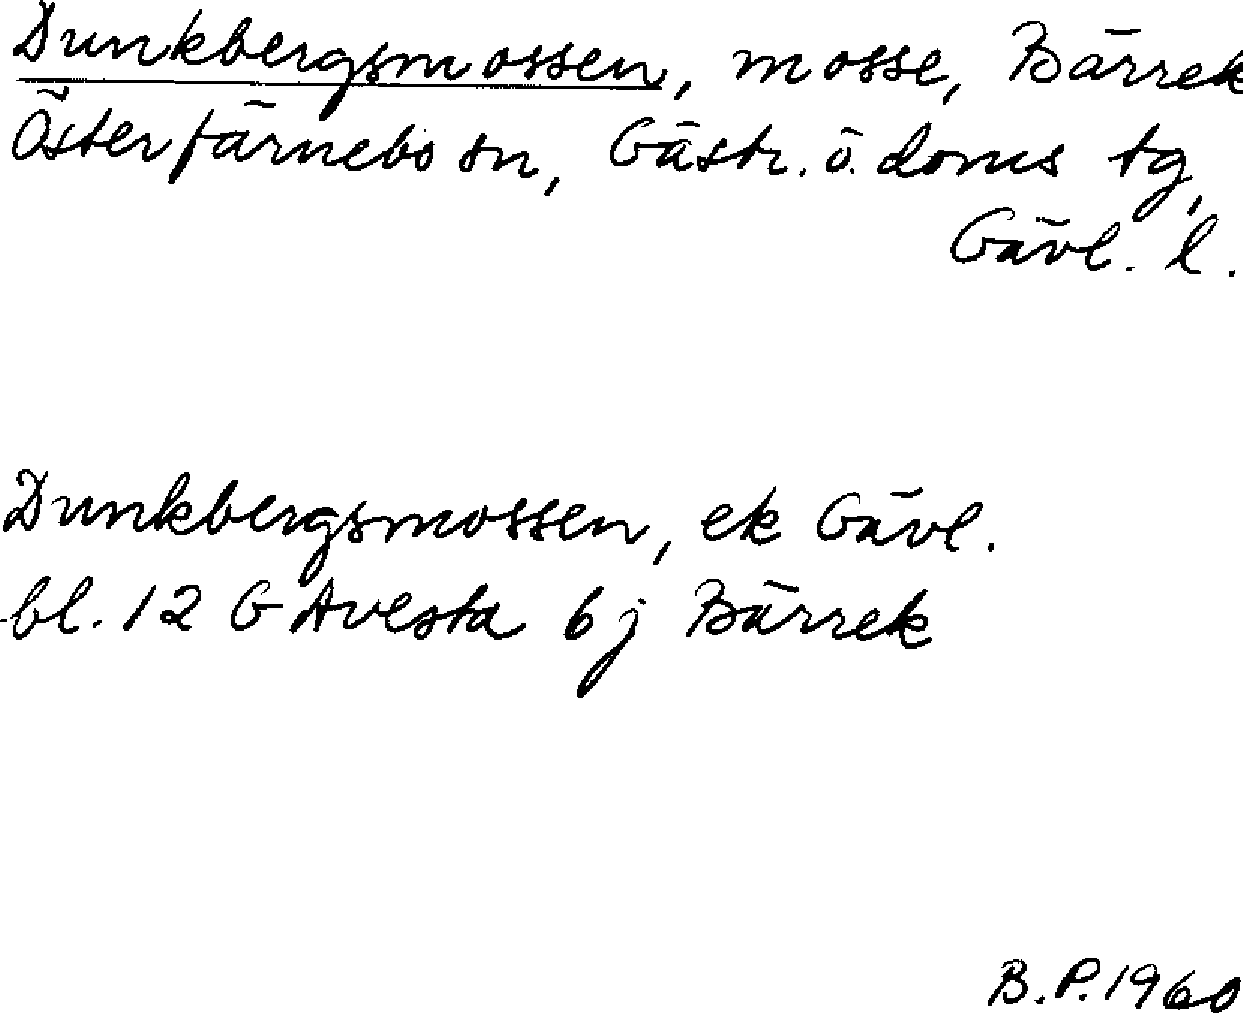 Dunkbergsmossen, mosse, Bärrek
Österfärnebo sn, Gästr. ö. doms tg,
Gävl. l.
Dunkbergsmossen, ek Gävl.
bl. 12 G Avesta 6j Bärrek
B.P. 1960